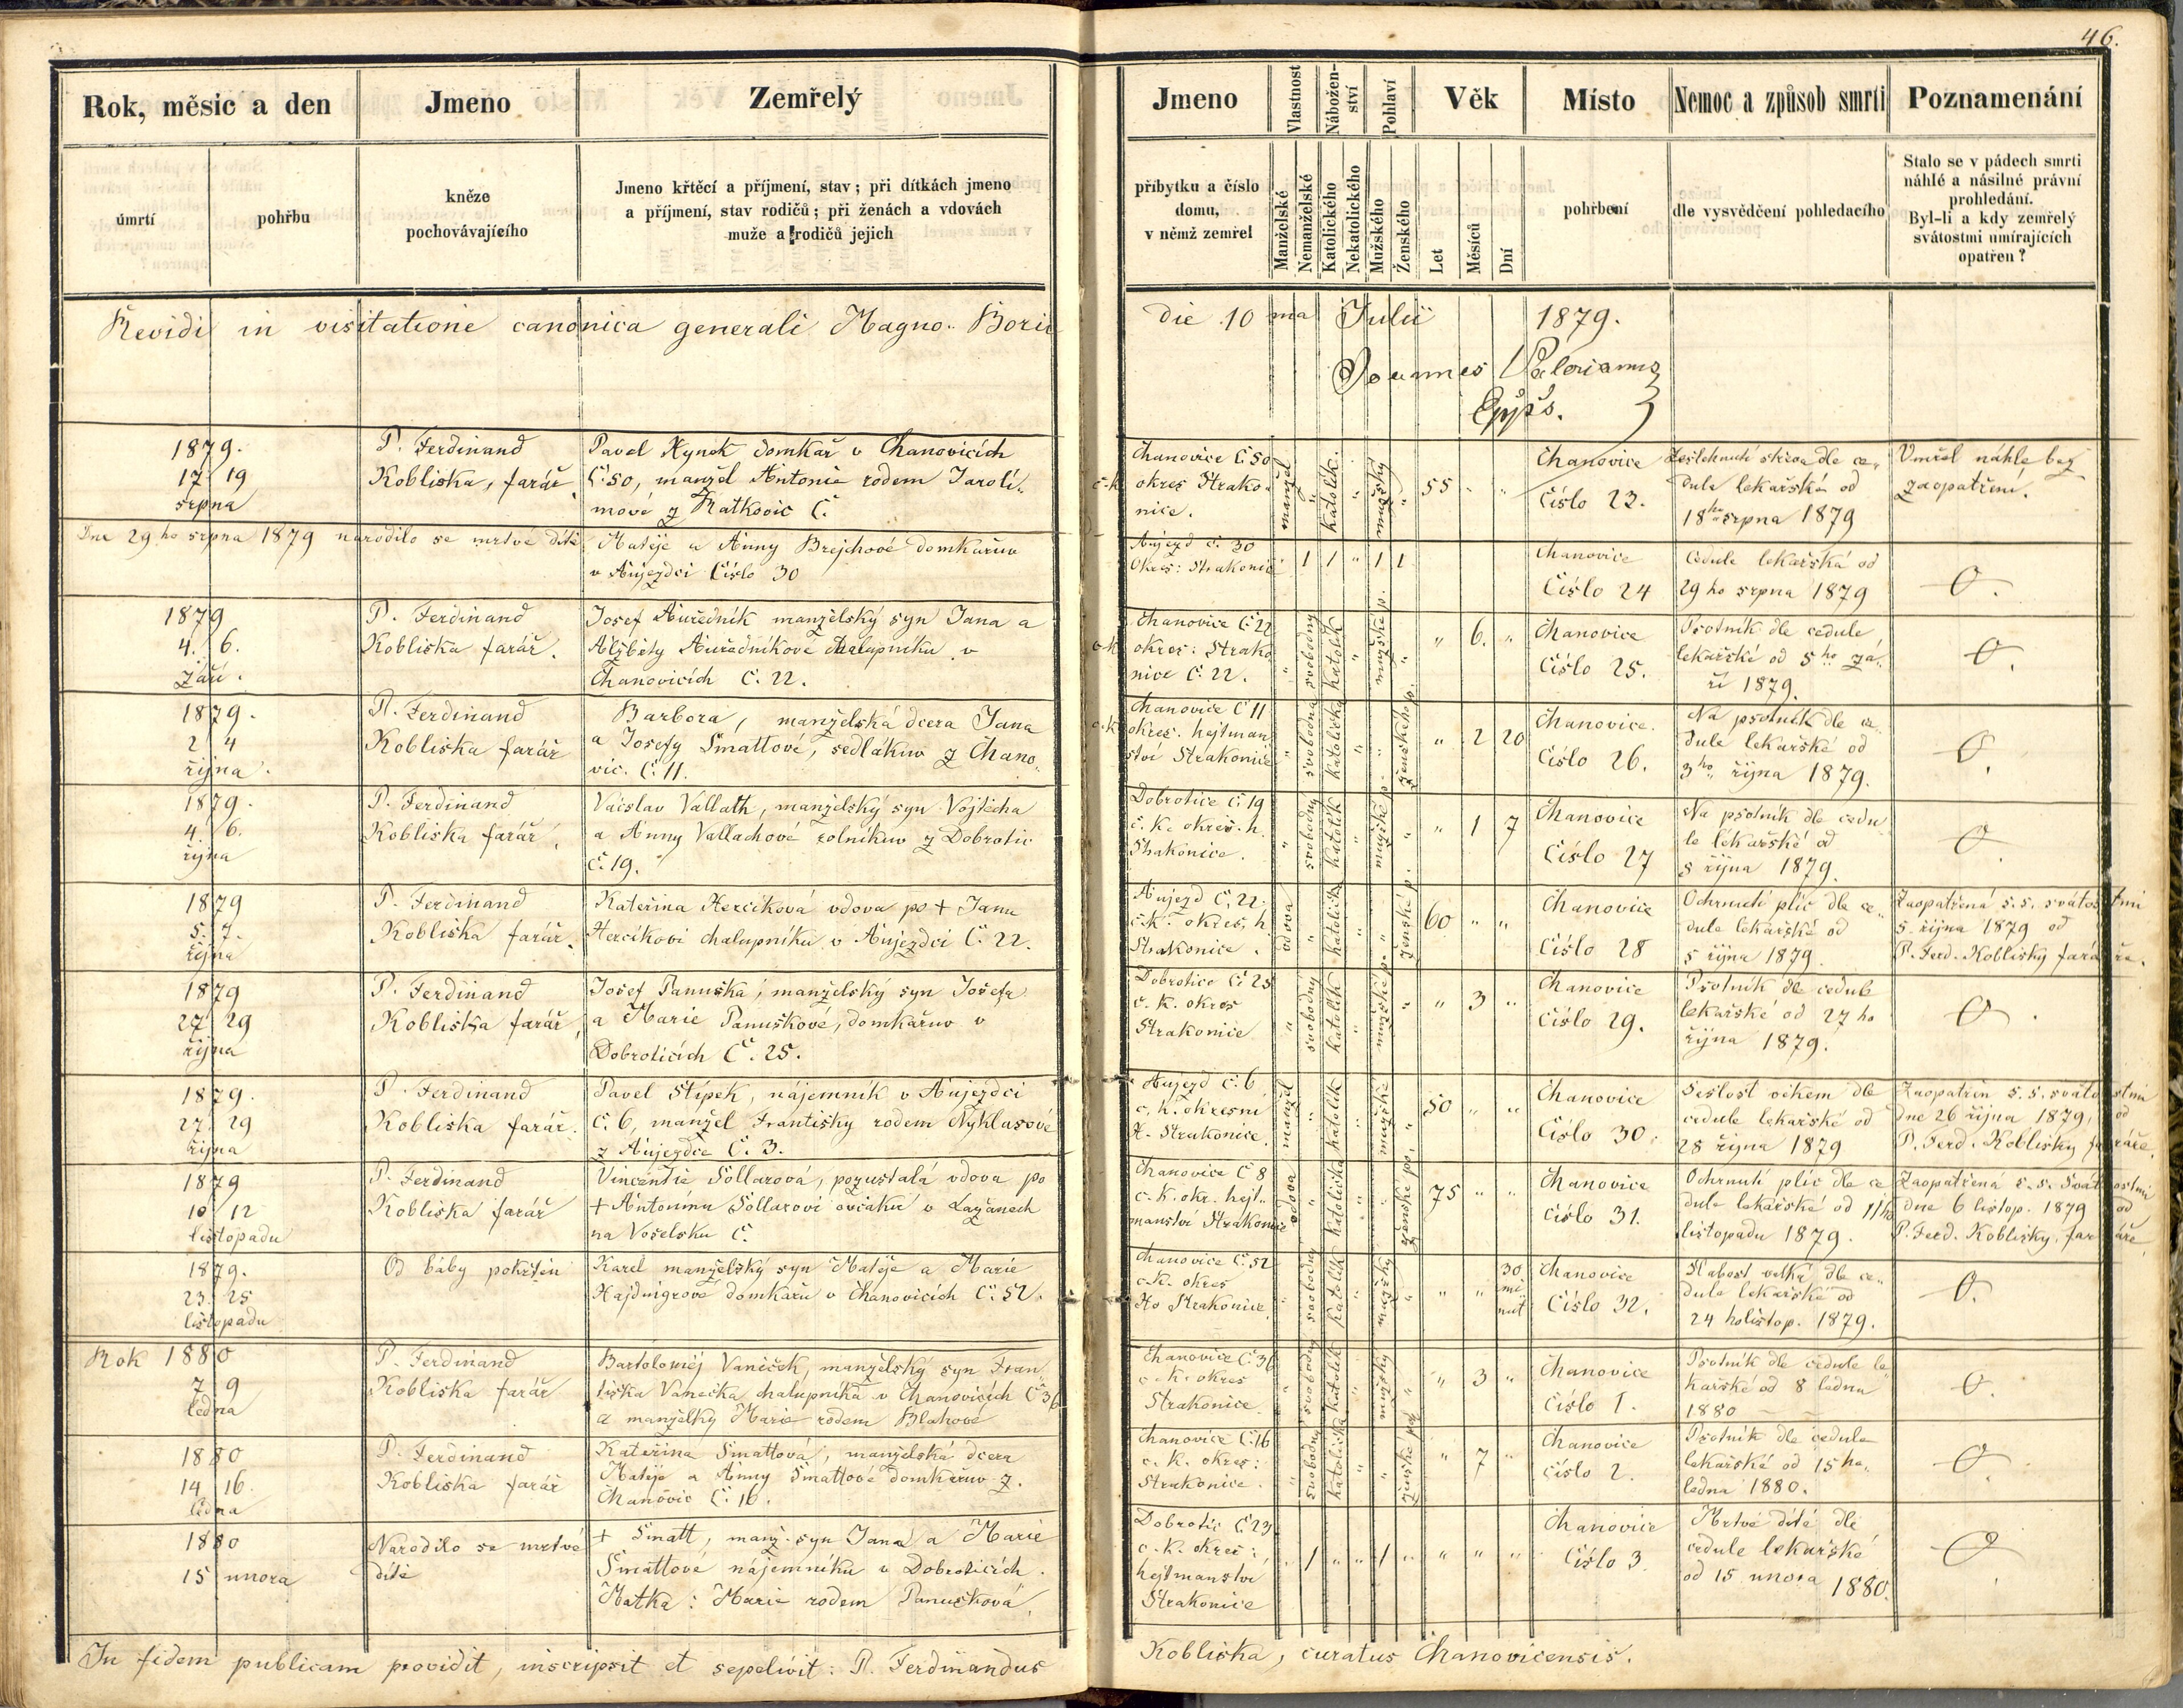 46.
Rok, měsic a den
Jmeno
Zemřelý
úmrtí
pohřbu
kněze
pochovávajícího
Jmeno křtěcí a příjmení, stav; při dítkách jmeno
a příjmení, stav rodičů; při ženách a vdovách
muže a rodičů jejich
Jmeno
Vlastnost
Nábožen-
ství
Pohlaví
Věk
Místo
Nemoc a způsob smrti
Poznamenání
příbytku a číslo
domu,
v němž zemřel
Manželské
Nemanželské
Katolického
Nekatolického
Mužského
Ženského
Let
Měsíců
Dní
pohřbení
dle vysvědčení pohledacího
Stalo se v pádech smrti
náhlé a násilné právní
prohledání.
Byl-li a kdy zemřelý
svátostmi umírajících
opatřen?
Revidi in visitatione canonica generali Magno-Boric die 10 ma Julii 1879.
Joannes Valerianus
Eppus.
1879.
17 19
srpna
P. Ferdinand
Kobliska, farář.
Pavel Hynek domkař v Chanovicích
č. 50, manžel Antonie rodem Jarolí-
mové z Ratkovic č.
Chanovice č. 50
č. k. okres Strako-
nice.
manžel " katolík. " mužský "
55 " "
Chanovice
Číslo 23.
dle ce-
dule lekařské od
18ho srpna 1879
Umřel náhle bez
zaopatření.
Dne 29 ho srpna 1879 narodilo se mrtvé dítě
Matěje a Anny Brejchové domkařův
v Aujezdci Číslo 30
Aujezd č. 30
Okres: Strakonic
1 1 " 1 1
Chanovice
Číslo 24
Cedule lekařská od
29 ho srpna 1879
O.
1879
4. 6.
září.
P. Ferdinand
Kobliska farář.
Josef Auředník manželský syn Jana a
Alžběty Auředníkové chalupníku v
Chanovicích č. 22.
Chanovice č. 22
č. k. okres: Strako
nice č. 22.
" svobodný katolík " mužské p. "
" 6. "
Chanovice
Číslo 25.
Psotník dle cedule
lekařské od 5 ho zá-
ří 1879.
O.
1879.
2 4
října.
P. Ferdinand
Kobliska farář
Barbora, manželská dcera Jana
a Josefy Šmattové, sedlákův z Chano-
vic. č. 11.
Chanovice č 11
č. k. okres. hejtman
ství Strakonice
" svobodna katolička " " ženského p.
" 2 20
Chanovice.
Číslo 26.
Na psotník dle ce-
dule lekařské od
3ho října 1879.
O.
1879.
4. 6.
října
P. Ferdinand
Kobliska farář,
Václav Vallath, manželský syn Vojtěcha
a Anny Vallachové rolníkův z Dobrotic
č. 19.
Dobrotice č. 19
č. k. okres. h.
Strakonice.
" svobodný katolík " mužské p. "
" 1 7
Chanovice
Číslo 27
Na psotník dle cedu
le lékařské od
5 října 1879.
O.
1879
5. 7.
října
P. Ferdinand
Kobliska farář.
Kateřina Hercíková vdova po + Janu
Hercíkovi chalupníku v Aujezdci č. 22.
Aujezd č. 22.
č. k. okres. h
Strakonice.
vdova " katolička " " ženské p.
60 " "
Chanovice
Číslo 28
Ochrnutí plic dle ce-
dule lekařské od
5 října 1879.
Zaopatřená s. s. svátostmi
5. října 1879 od
P. Ferd. Koblisky faráře.
1879
27 29
října
P. Ferdinand
Kobliska farář,
Josef Panuška, manželský syn Josefa
a Marie Panuškové, domkařův v
Dobroticích č. 25.
Dobrotice č 25
č. k. okres
Strakonice
" svobodný katolík " mužské p. "
" 3 "
Chanovice
Číslo 29.
Psotník dle cedule
lekařské od 27 ho
října 1879.
O.
1879.
27. 29
října
P. Ferdinand
Kobliska farář.
Pavel Štípek, nájemník v Aujezdci
č. 6, manžel Františky rodem Nyklasové
z Aujezdce č. 3.
Aujezd č. 6
c. k. okresní
H. Strakonice.
manžel " katolík " mužské "
50 " "
Chanovice
Číslo 30.
Sešlost věkem dle
cedule lekařské od
28 října 1879
Zaopatřen s. s. svátostmi
dne 26 října 1879, od
P. Ferd. Koblisky faráře.
1879
10 12
listopadu
P. Ferdinand
Kobliska farář
Vincentie Sollarová, pozustalá vdova po
+ Antonínu Sollarovi ovčáku v Lažanech
na Vošelsku č.
Chanovice č 8
c. k. okr. hejt-
manství Strakonice
vdova " katolička " " ženské po.
75 " "
Chanovice
Číslo 31.
Ochrnutí plic dle ce
dule lekařské od 11 ho
listopadu 1879.
Zaopatřená s. s. Svátostmi
dne 6 listop. 1879 od
P. Ferd. Koblisky, faráře
1879.
23. 25
listopadu
Od báby pokřtěn
Karel manželský syn Matěje a Marie
Hajdnigrové domkařů v Chanovicích č. 52.
Chanovice č. 52
c. k. okres
Ho Strakonice
" svobodný katolík " mužský "
" " 30 mi nut
Chanovice
Číslo 32.
Slabost velká dle ce-
dule lekařské od
24 holistop. 1879.
O.
Rok 1880
7 9
ledna
P. Ferdinand
Kobliska farář
Bartoloměj Vaníček, manželský syn Fran-
tiška Vanečka chalupníka v Chanovicích č 36
a manželky Marie rodem Blahové
Chanovice č. 36
c. k. okres
Strakonice.
" svobodný katolík " mužský "
" 3 "
Chanovice
Číslo 1.
Psotník dle cedule le
kařské od 8 ledna
1880
O.
1880
14 16.
ledna
P. Ferdinand
Kobliska farář
Kateřina Šmattová, manželská dcera
Matěje a Anny Šmattové domkařův z.
Chanovic č. 16.
Chanovice č. 16
c. k. okres:
Strakonice.
" svobodná katolička " " ženské po
" 7 "
Chanovice
číslo 2.
Psotník dle cedule
lekařské od 15 ho
ledna 1880.
O.
1880
15 unora
Narodilo se mrtvé
dítě
+ Šmatt, manž. syn Jana a Marie
Šmattové nájemníku v Dobroticích.
Matka: Marie rodem Panušková
Dobrotic č. 23
c. k. okres:
hejtmanství
Strakonice
" 1 " " 1 " " " "
Chanovice
Číslo 3.
Mrtvé dítě dle
cedule lekařské
od 15 unora 1880.
O
In fidem publicam providit, inscripsit et sepelivit: P. Ferdinandus Kobliska, curatus Chanovicensis.